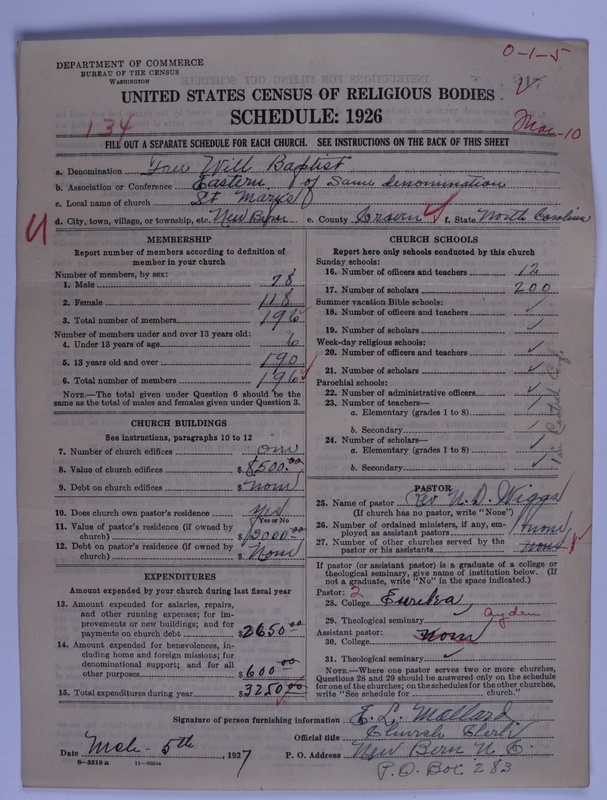 0-1-5
DEPARTMENT OF COMMERCE
BUREAU OF THE CENSUS
WASHINGTON
UNITED STATES CENSUS OF RELIGIOUS BODIES
SCHEDULE: 1926
134
Mar-10
FILL OUT A SEPARATE SCHEDULE FOR EACH CHURCH. SEE INSTRUCTIONS ON THE BACK OF THIS SHEET
a. Denomination Free Will Baptist
b. Association or Conference Eastern of Same denomination
c. Local name of church St Marys
d. City, town, village, or township, etc. New Bern e. County Craven f. State North Carolina
MEMBERSHIP
Report number of members according to definition of
member in your church
Number of members, by sex:
1. Male 78
2. Female 118
3. Total number of members 196
Number of members under and over 13 years old:
4. Under 13 years of age 6
5. 13 years old and over 190
6. Total number of members 196
NOTE.—The total given under Question 6 should be the
same as the total of males and females given under Question 3.
CHURCH BUILDINGS
See instructions, paragraphs 10 to 12
7. Number of church edifices one
8. Value of church edifices $8500.00
9. Debt on church edifices $None
10. Does church own pastor's residence Yes
Yes or No
11. Value of pastor's residence (if owned by
church) $3000.00
12. Debt on pastor's residence (if owned by
church) $None
EXPENDITURES
Amount expended by your church during last fiscal year
13. Amount expended for salaries, repairs,
and other running expenses; for im-
provements or new buildings; and for
payments on church debt $2650.00
14. Amount expended for benevolences, in-
cluding home and foreign missions; for
denominational support; and for all
other purposes $600.00
15. Total expenditures during year $3250.00
CHURCH SCHOOLS
Report here only schools conducted by this church
Sunday schools:
16. Number of officers and teachers 12
17. Number of scholars 200
Summer vacation Bible schools:
18. Number of officers and teachers ✓
19. Number of scholars ✓
Week-day religious schools:
20. Number of officers and teachers ✓
21. Number of scholars ✓
Parochial schools:
22. Number of administrative officers ✓
23. Number of teachers—
a. Elementary (grades 1 to 8) ✓
b. Secondary ✓
24. Number of scholars—
a. Elementary (grades 1 to 8) ✓
b. Secondary ✓
PASTOR
25. Name of pastor Rev N.D. Wiggs
(If church has no pastor, write "None")
26. Number of ordained ministers, if any, em-
ployed as assistant pastors none
27. Number of other churches served by the
pastor or his assistants none
If pastor (or assistant pastor) is a graduate of a college or
theological seminary, give name of institution below. (If
not a graduate, write "No" in the space indicated.)
Pastor: 2
28. College Eureka
29. Theological seminary ✓ Ayden
Assistant pastor:
30. College none
31. Theological seminary ✓
NOTE.—Where one pastor serves two or more churches,
Questions 28 and 29 should be answered only on the schedule
for one of the churches; on the schedules for the other churches,
write "See schedule for church."
Signature of person furnishing information E. L. Mallard
Official title Church Clerk
Date Mch- 5th, 1927 P. O. Address New Bern N. C.
8-5518a
P.O. Box 283